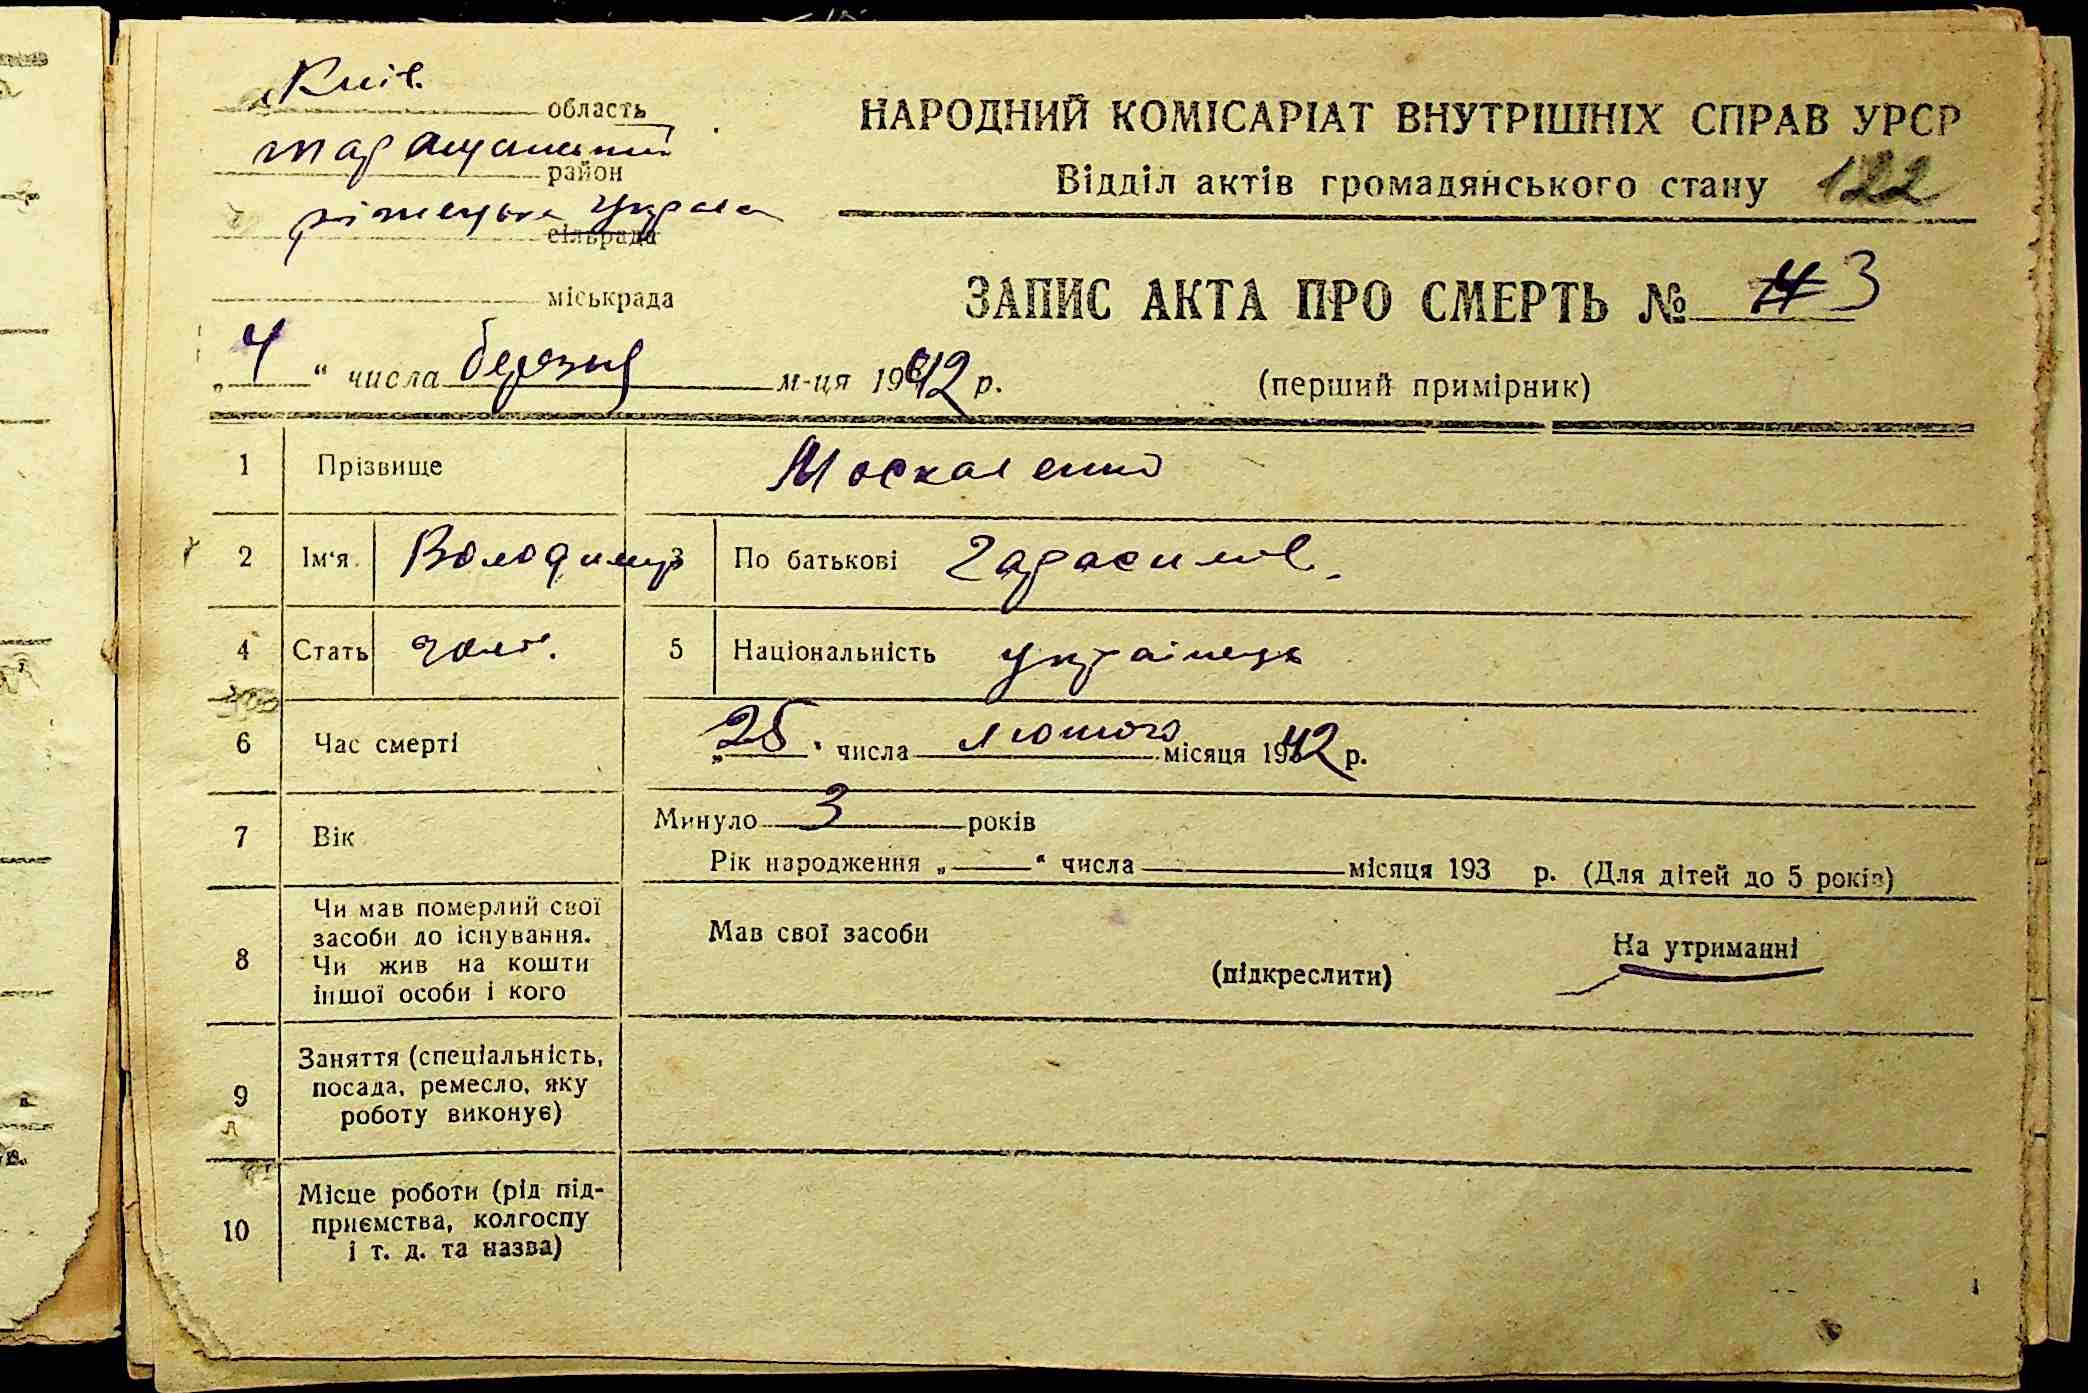 Київ.
область
таращанський
район
управа
сільрада
міськрада
НАРОДНИЙ КОМІСАРІАТ ВНУТРІШНІХ СПРАВ УРСР
Відділ актів громадянського стану 122
ЗАПИС АКТА ПРО СМЕРТЬ № 3
„4“ числа березня м-ця 1942 р.
(перший примірник)
1 Прізвище Москаленко
2 Ім'я Володимир 3 По батькові Гарасимов.
4 Стать чол. 5 Національність українець
6 Час смерті „25“ числа лютого місяця 1942 р.
7 Вік Минуло 3 років
Рік народження „ “ числа місяця 193 р. (Для дітей до 5 років)
8 Чи мав померлий свої
засоби до існування.
Чи жив на кошти
іншої особи і кого
Мав свої засоби
(підкреслити)
На утриманні
9 Заняття (спеціальність,
посада, ремесло, яку
роботу виконує)
10 Місце роботи (рід під-
приємства, колгоспу
і т. д. та назва)